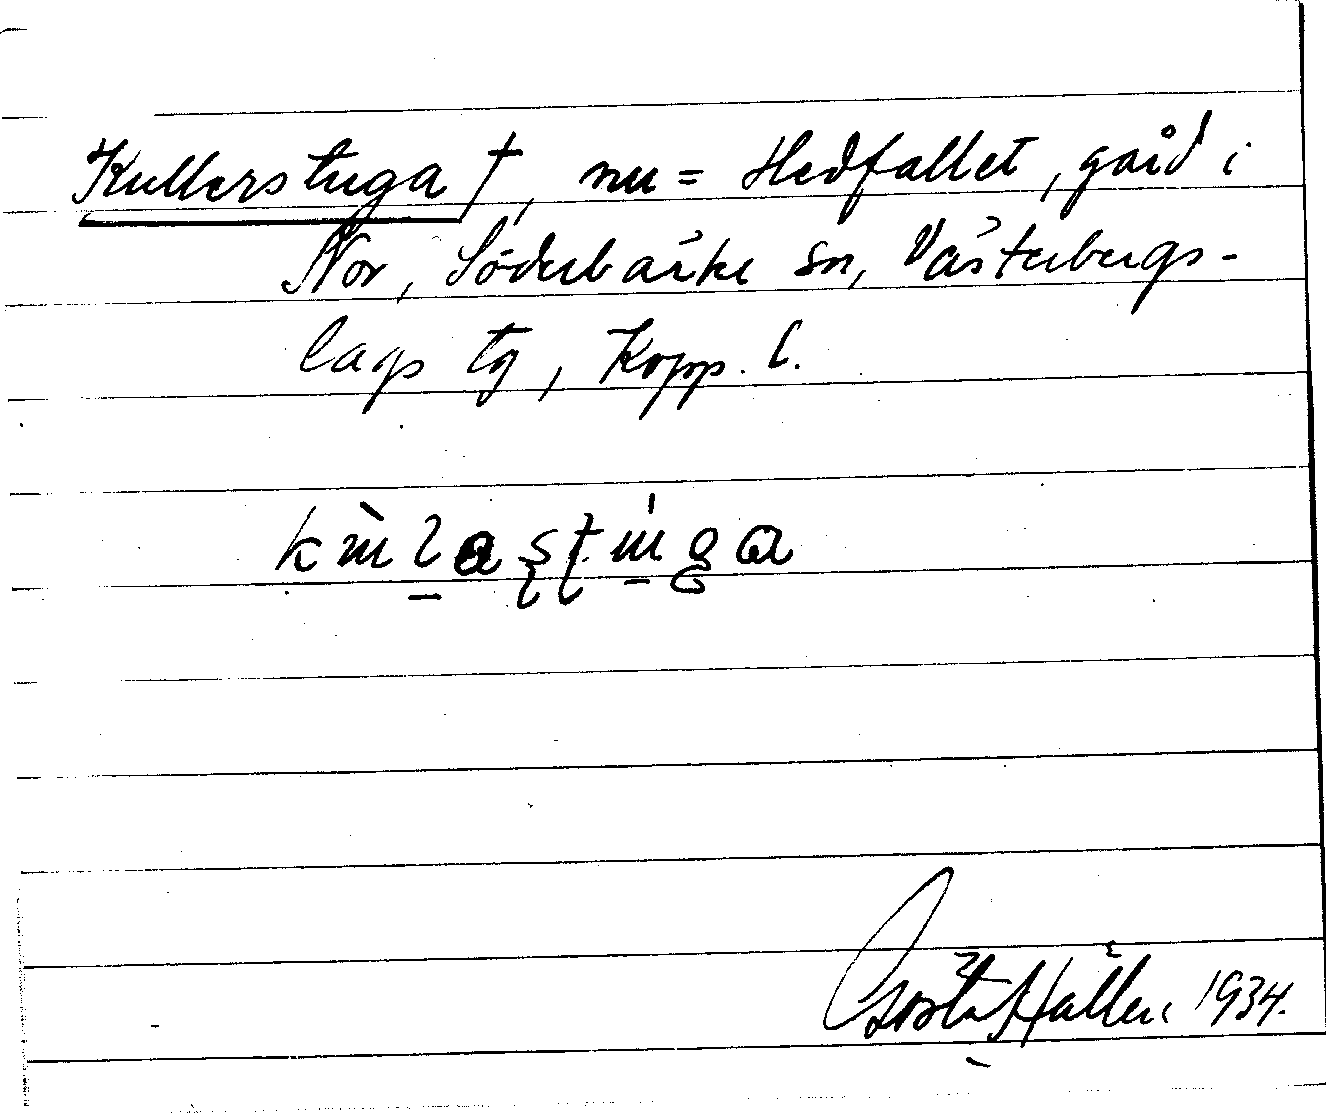 Kullerstuga †, nu = Hedfallet, gård i
Nor, Söderbärke sn, Västerbergs-
lags tg, Kopp. l.
Gösta Hallen 1934.